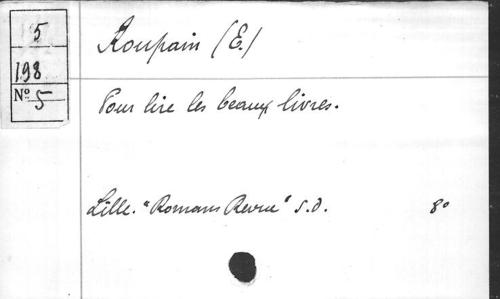 5
198
Nº 5
Roupain (E.)
Pour lire les beaux livres.
Lille. "Romans Revue" S.D. 8º